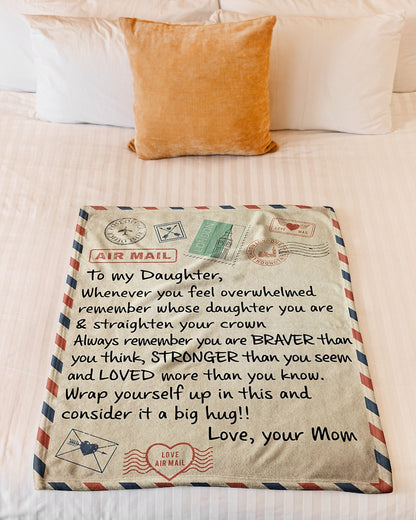 AIR MAIL
LOVE MAIL
To my Daughter,
Whenever you feel overwhelmed
remember whose daughter you are
& straighten your crown
Always remember you are BRAVER than
you think, STRONGER than you seem
and LOVED more than you know.
Wrap yourself up in this and
consider it a big hug!!
Love, your Mom
LOVE
AIR MAIL